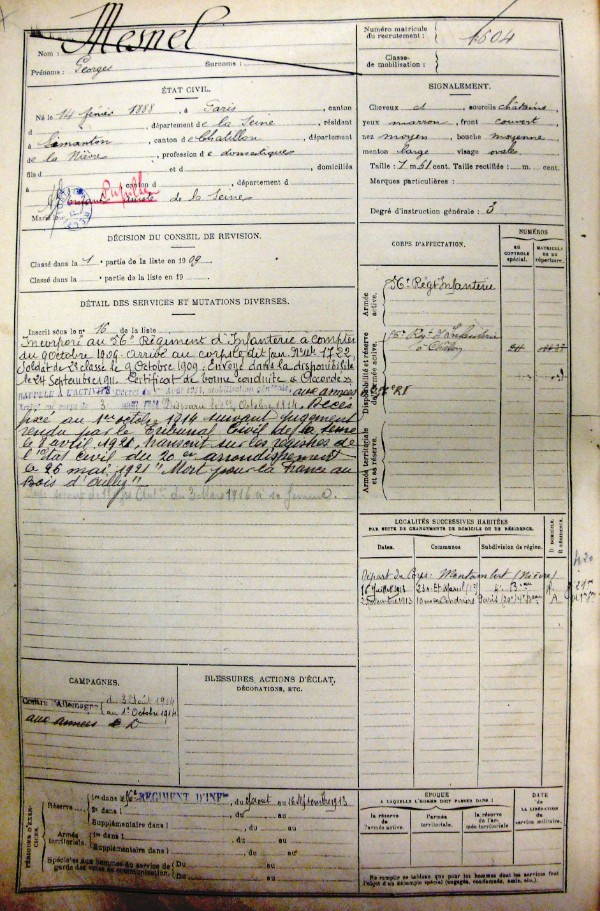 Nom : Mesnel
Prénoms : Georges Surnoms :
Numéro matricule du recrutement : 1604
Classe de mobilisation :
ÉTAT CIVIL.
Né le 14 février 1888, à Paris, canton
d, département de la Seine, résidant
à Limanton, canton de Chatillon, département
de la Nièvre, profession de domestique
fils d et d, domiciliés
canton d, département d
Pupille
de la Seine
SIGNALEMENT.
Cheveux et sourcils châtains
yeux marron, front couvert
nez moyen, bouche moyenne
menton large visage ovale
Taille : 1 m. 51 cent. Taille rectifiée : m. cent.
Marques particulières :
Degré d'instruction générale : 3
DÉCISION DU CONSEIL DE REVISION.
Classé dans la 1 partie de la liste en 1909
Classé dans la partie de la liste en 19
DÉTAIL DES SERVICES ET MUTATIONS DIVERSES.
Inscrit sous le n° 16 de la liste
Incorporé au 56e Régiment d'Infanterie à compter
du 9 octobre 1909. Arrivé au corps le dit jour. Nº Mle 1722
Soldat de 2e classe le 9 Octobre 1909. Envoyé dans la disponibilité
le 24 Septembre 1911. Certificat de bonne conduite "Accordé"
RAPPELÉ À L'ACTIVITÉ
aux armées
3 août 1914 Disparu le 1er Octobre 1914. Décès
fixé au 1er octobre 1914 suivant jugement
rendu par le Tribunal Civil de la Seine
le 8 avril 1921, transcrit sur les registres de
l'Etat civil du 20e arrondissement
le 26 mai 1921 "Mort pour la France au
Bois d'Ailly"
CORPS D'AFFECTATION.
NUMÉROS
AU CONTRÔLE spécial.
MATRICULE OU DU répertoire.
Armée active.
56e Régt Infanterie
Disponibilité et réserve de l'armée active.
Armée territoriale et sa réserve.
LOCALITÉS SUCCESSIVES HABITÉES
PAR SUITE DE CHANGEMENTS DE DOMICILE OU DE RÉSIDENCE.
Dates. Communes Subdivision de région. D. DOMICILE. R. RÉSIDENCE.
Départ du Corps: Montambert (Nièvre)
CAMPAGNES.
Contre l'Allemagne du 3 Août 1914
au 1er Octobre 1914
aux armées
BLESSURES, ACTIONS D'ÉCLAT,
DÉCORATIONS, ETC.
PÉRIODES D'EXERCICES.
Réserve.
1re dans le RÉGIMENT D'INFie, du 31 août au 16 Septembre 1913
2e dans l, du au
Supplémentaire dans l du au
Armée territoriale.
1re dans l du au
Supplémentaire dans l du au
Spéciales aux hommes du service de garde des voies de communication.
Du au
Du au
ÉPOQUE
À LAQUELLE L'HOMME DOIT PASSER DANS :
la réserve de l'armée active.
l'armée territoriale.
la réserve de l'armée territoriale
DATE de LA LIBÉRATION du service militaire.
Ne remplir ce tableau que pour les hommes dont les services font l'objet d'un décompte spécial (engagés, condamnés, omis, etc.)